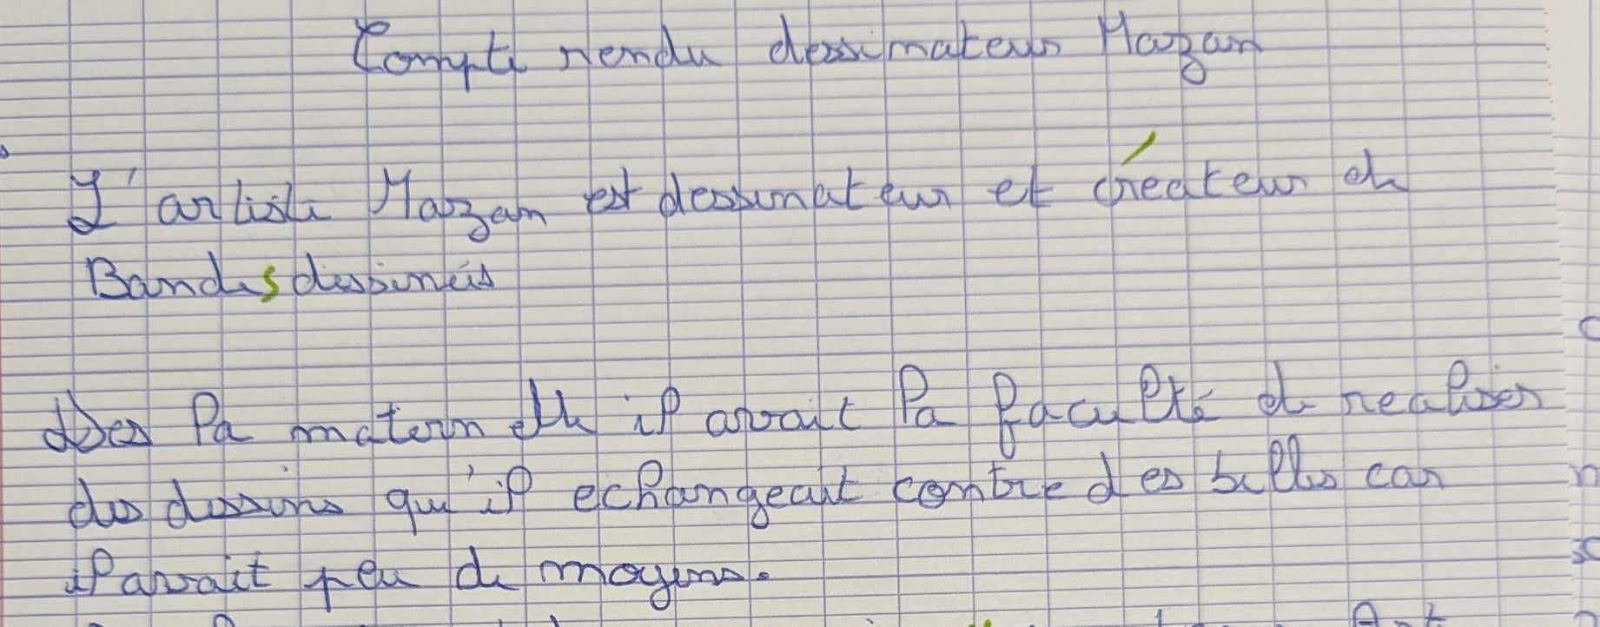 Compte rendu dessinateur Mazan
L'artiste Mazan est dessinateur et créateur de
Bandes dessinées
Des la maternelle il avait la faculté de realiser
des dessins qu'il echangeait contre des billes car
il avait peu de moyens.